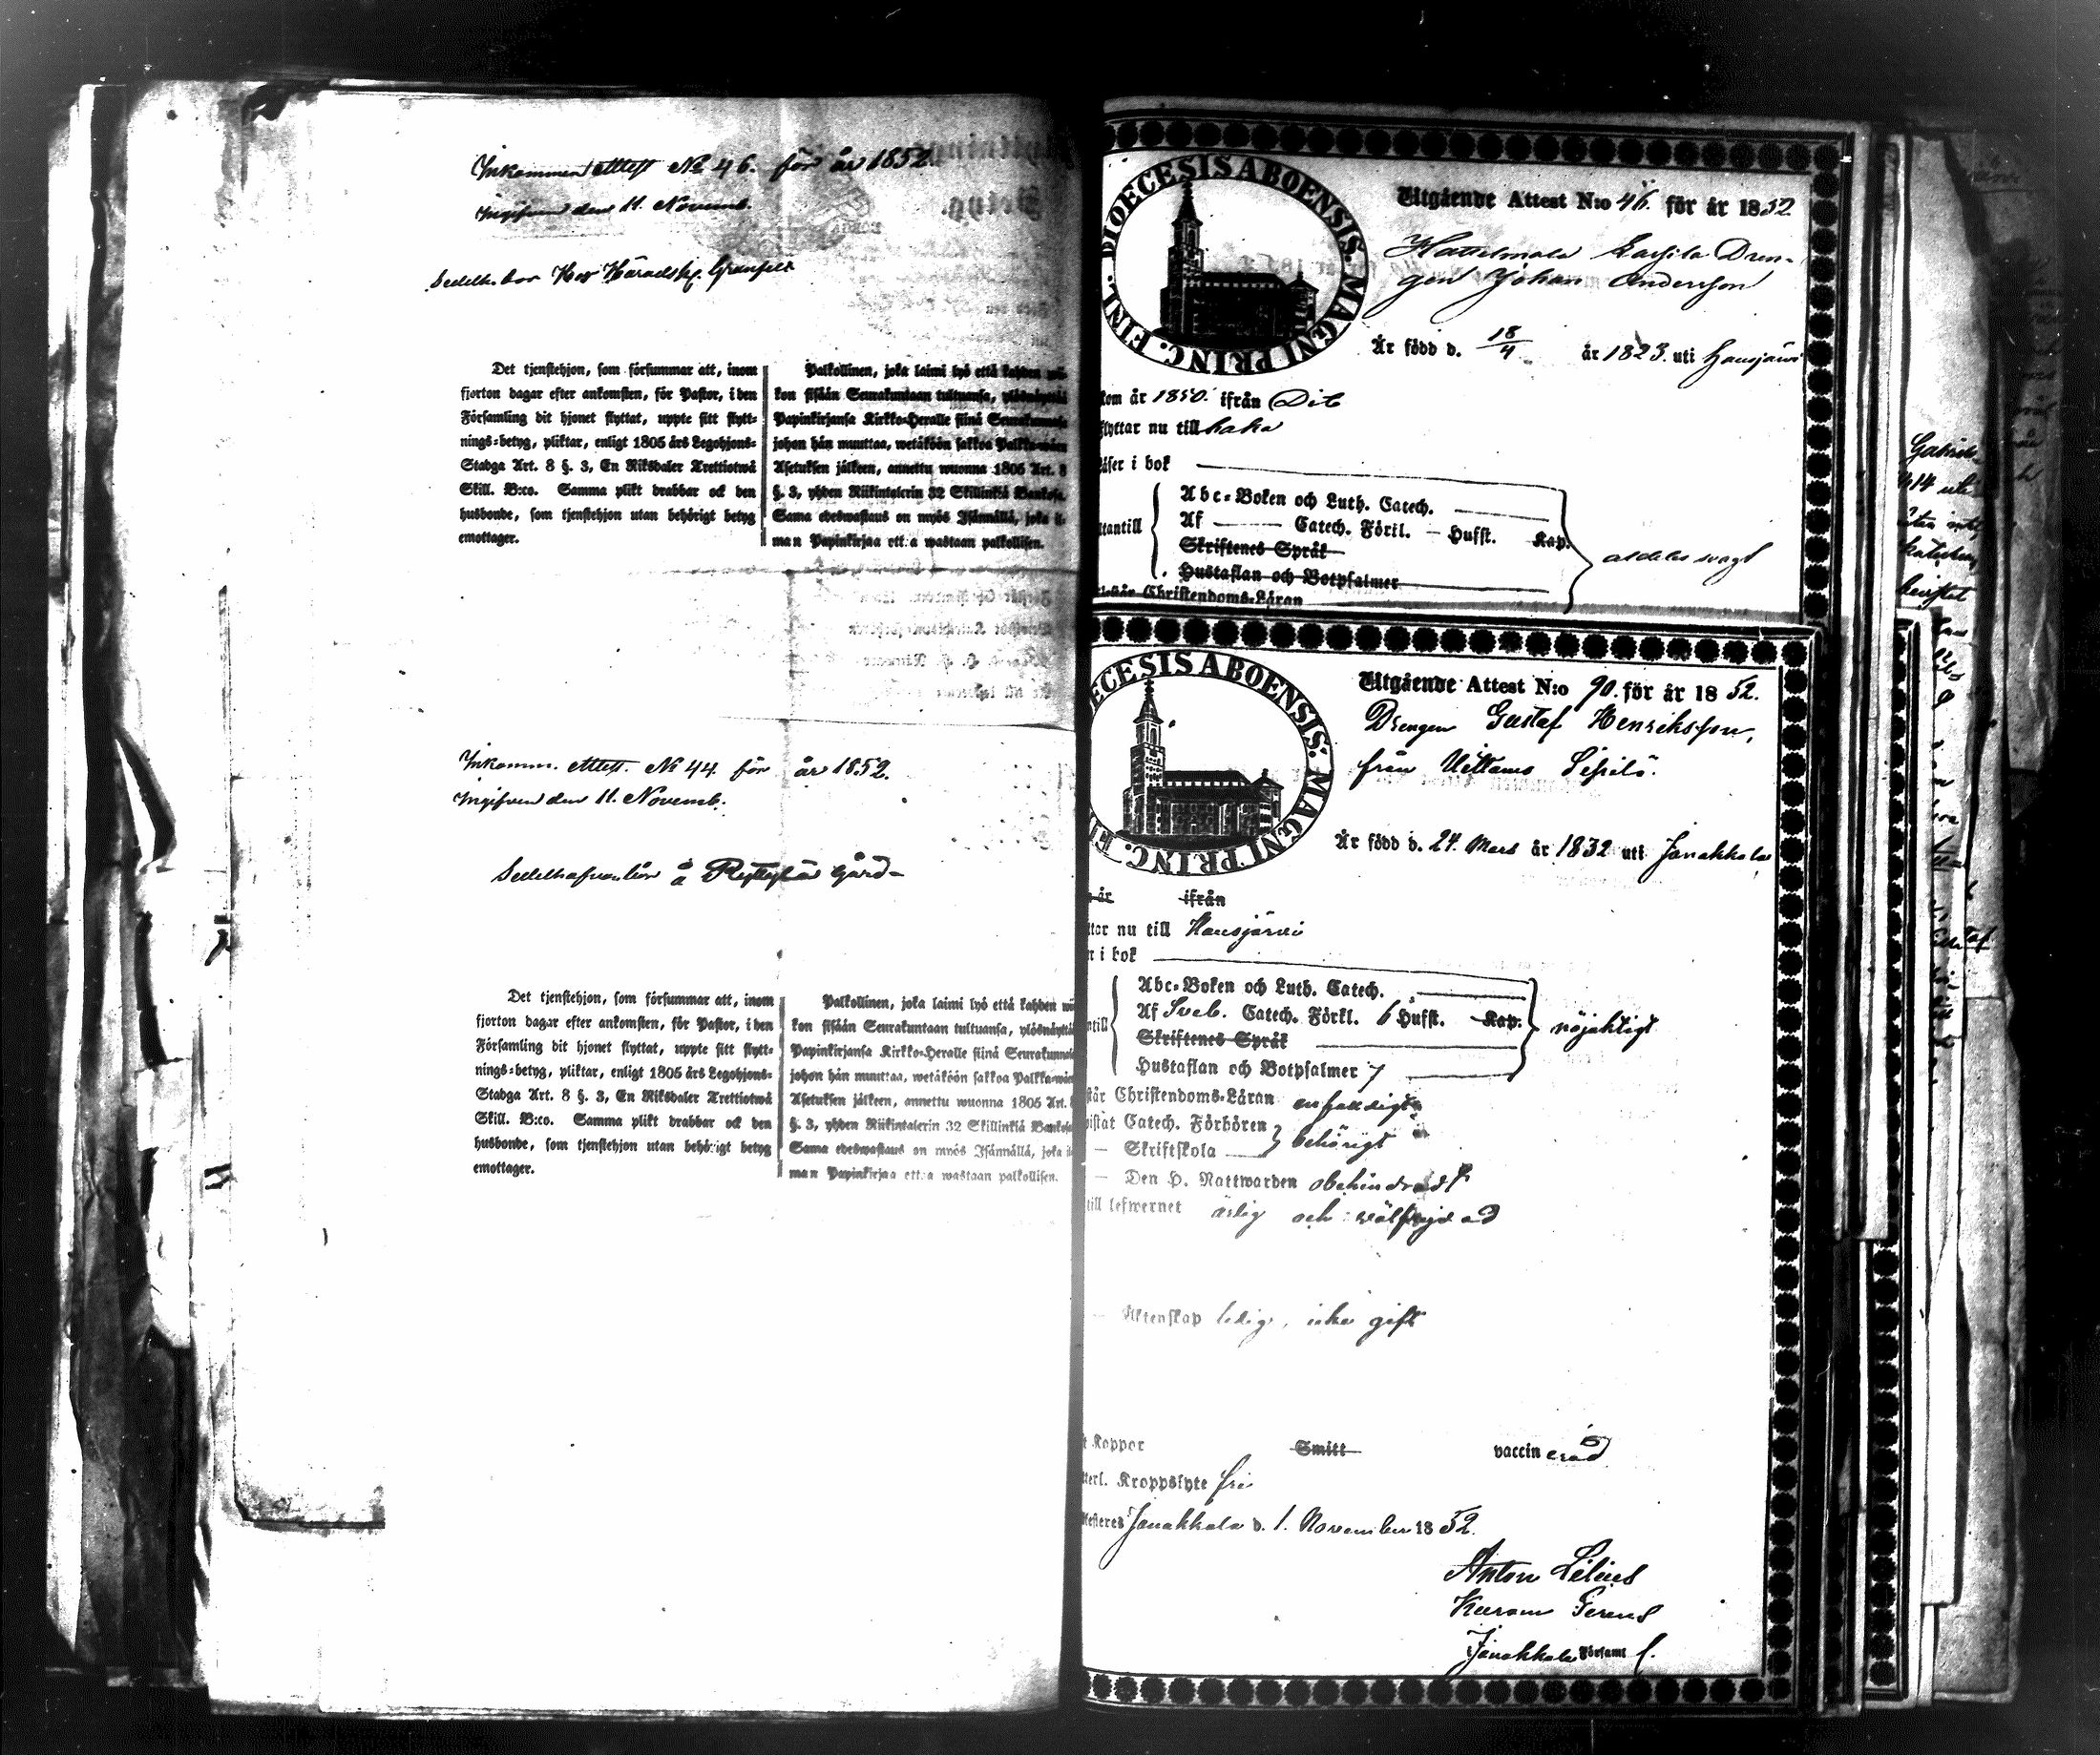 Inkommen Attest No 46. för år 1852.
Ingifven den 11. Novemb.
Det tjenstehjon, som försummar att, inom
fjorton dagar efter ankomsten, för Pastor, i den
Församling dit hjonet flyttat, uppte sitt flytt-
nings-betyg, pliktar, enligt 1805 års Legohjons-
Stadga Art. 8 §. 3, En Riksdaler Trettiotwå
Skill. B:co. Samma plikt drabbar ock den
husbonde, som tjenstehjon utan behörigt betyg
emottager.
Palkollinen, joka laimi lyö että kahden
kon sisään Seurakuntaan tultuansa,
Papinkirjansa Kirkko-Heralle siinä
johon hän muuttaa, wetäköön sakkoa
Asetuksen jälkeen, annettu wuonna 1805 Art. 8
§. 3, yhden Riikintalerin 32 Skillinkiä
Sama edeswastaus on myös Isännällä, joka
man Papinkirjaa ottaa wastaan palkollisen.
Inkomm. Attest. No 44. för år 1852.
Ingifven den 11. Novemb.
å Gård
Det tjenstehjon, som försummar att, inom
fjorton dagar efter ankomsten, för Pastor, i den
Församling dit hjonet flyttat, uppte sitt flytt-
nings-betyg, pliktar, enligt 1805 års Legohjons-
Stadga Art. 8 §. 3, En Riksdaler Trettiotwå
Skill. B:co. Samma plikt drabbar ock den
husbonde, som tjenstehjon utan behörigt betyg
emottager.
Palkollinen, joka laimi lyö että kahden
kon sisään Seurakuntaan tultuansa,
Papinkirjansa Kirkko-Heralle siinä
johon hän muuttaa, wetäköön sakkoa
Asetuksen jälkeen, annettu wuonna 1805 Art.
§. 3, yhden Riikintalerin 32 Skillinkiä
Sama edeswastaus on myös Isännällä, joka
man Papinkirjaa ottaa wastaan palkollisen.
DIOECESIS ABOENSIS. MAGNI PRINC. FINL.
Utgående Attest N:o 46. för år 1852
Hattelmala Dren-
gen Johan Andersson
Är född d. 18/4 år 1823. uti Hausjärvi
kom år 1850. ifrån Dito
flyttar nu till
läser i bok
Abc-Boken och Luth. Catech.
Af Catech. Förkl. Husst. Kap.
Skriftenes Språk
Hustaflan och Botpsalmer
aldeles svagt
Christendoms-Läran
ECESIS ABOENSIS. MAGNI PRINC.
Utgående Attest N:o 90. för år 1852.
Drengen Gustaf Henriksson,
från
Är född d. 24. Mars år 1832 uti Janakkala,
år ifrån
nu till Hausjärvi
i bok
Abc-Boken och Luth. Catech.
Af Sveb. Catech. Förkl. 6 Husst. Kap.
Skriftenes Språk
Hustaflan och Botpsalmer 7
nöjaktigt
Christendoms-Läran enfaldigt
Catech. Förhören
— Skriftskola
behörigt
— Den H. Nattwarden obehindradt
till lefwernet ärlig och välfrejdad
— Äktenskap ledig, icke gift
Koppor Smitt vaccinerad
Kroppslyte fri
Janakkala d. 1. November 1852.
Anton Lilius
Janakkala Församl